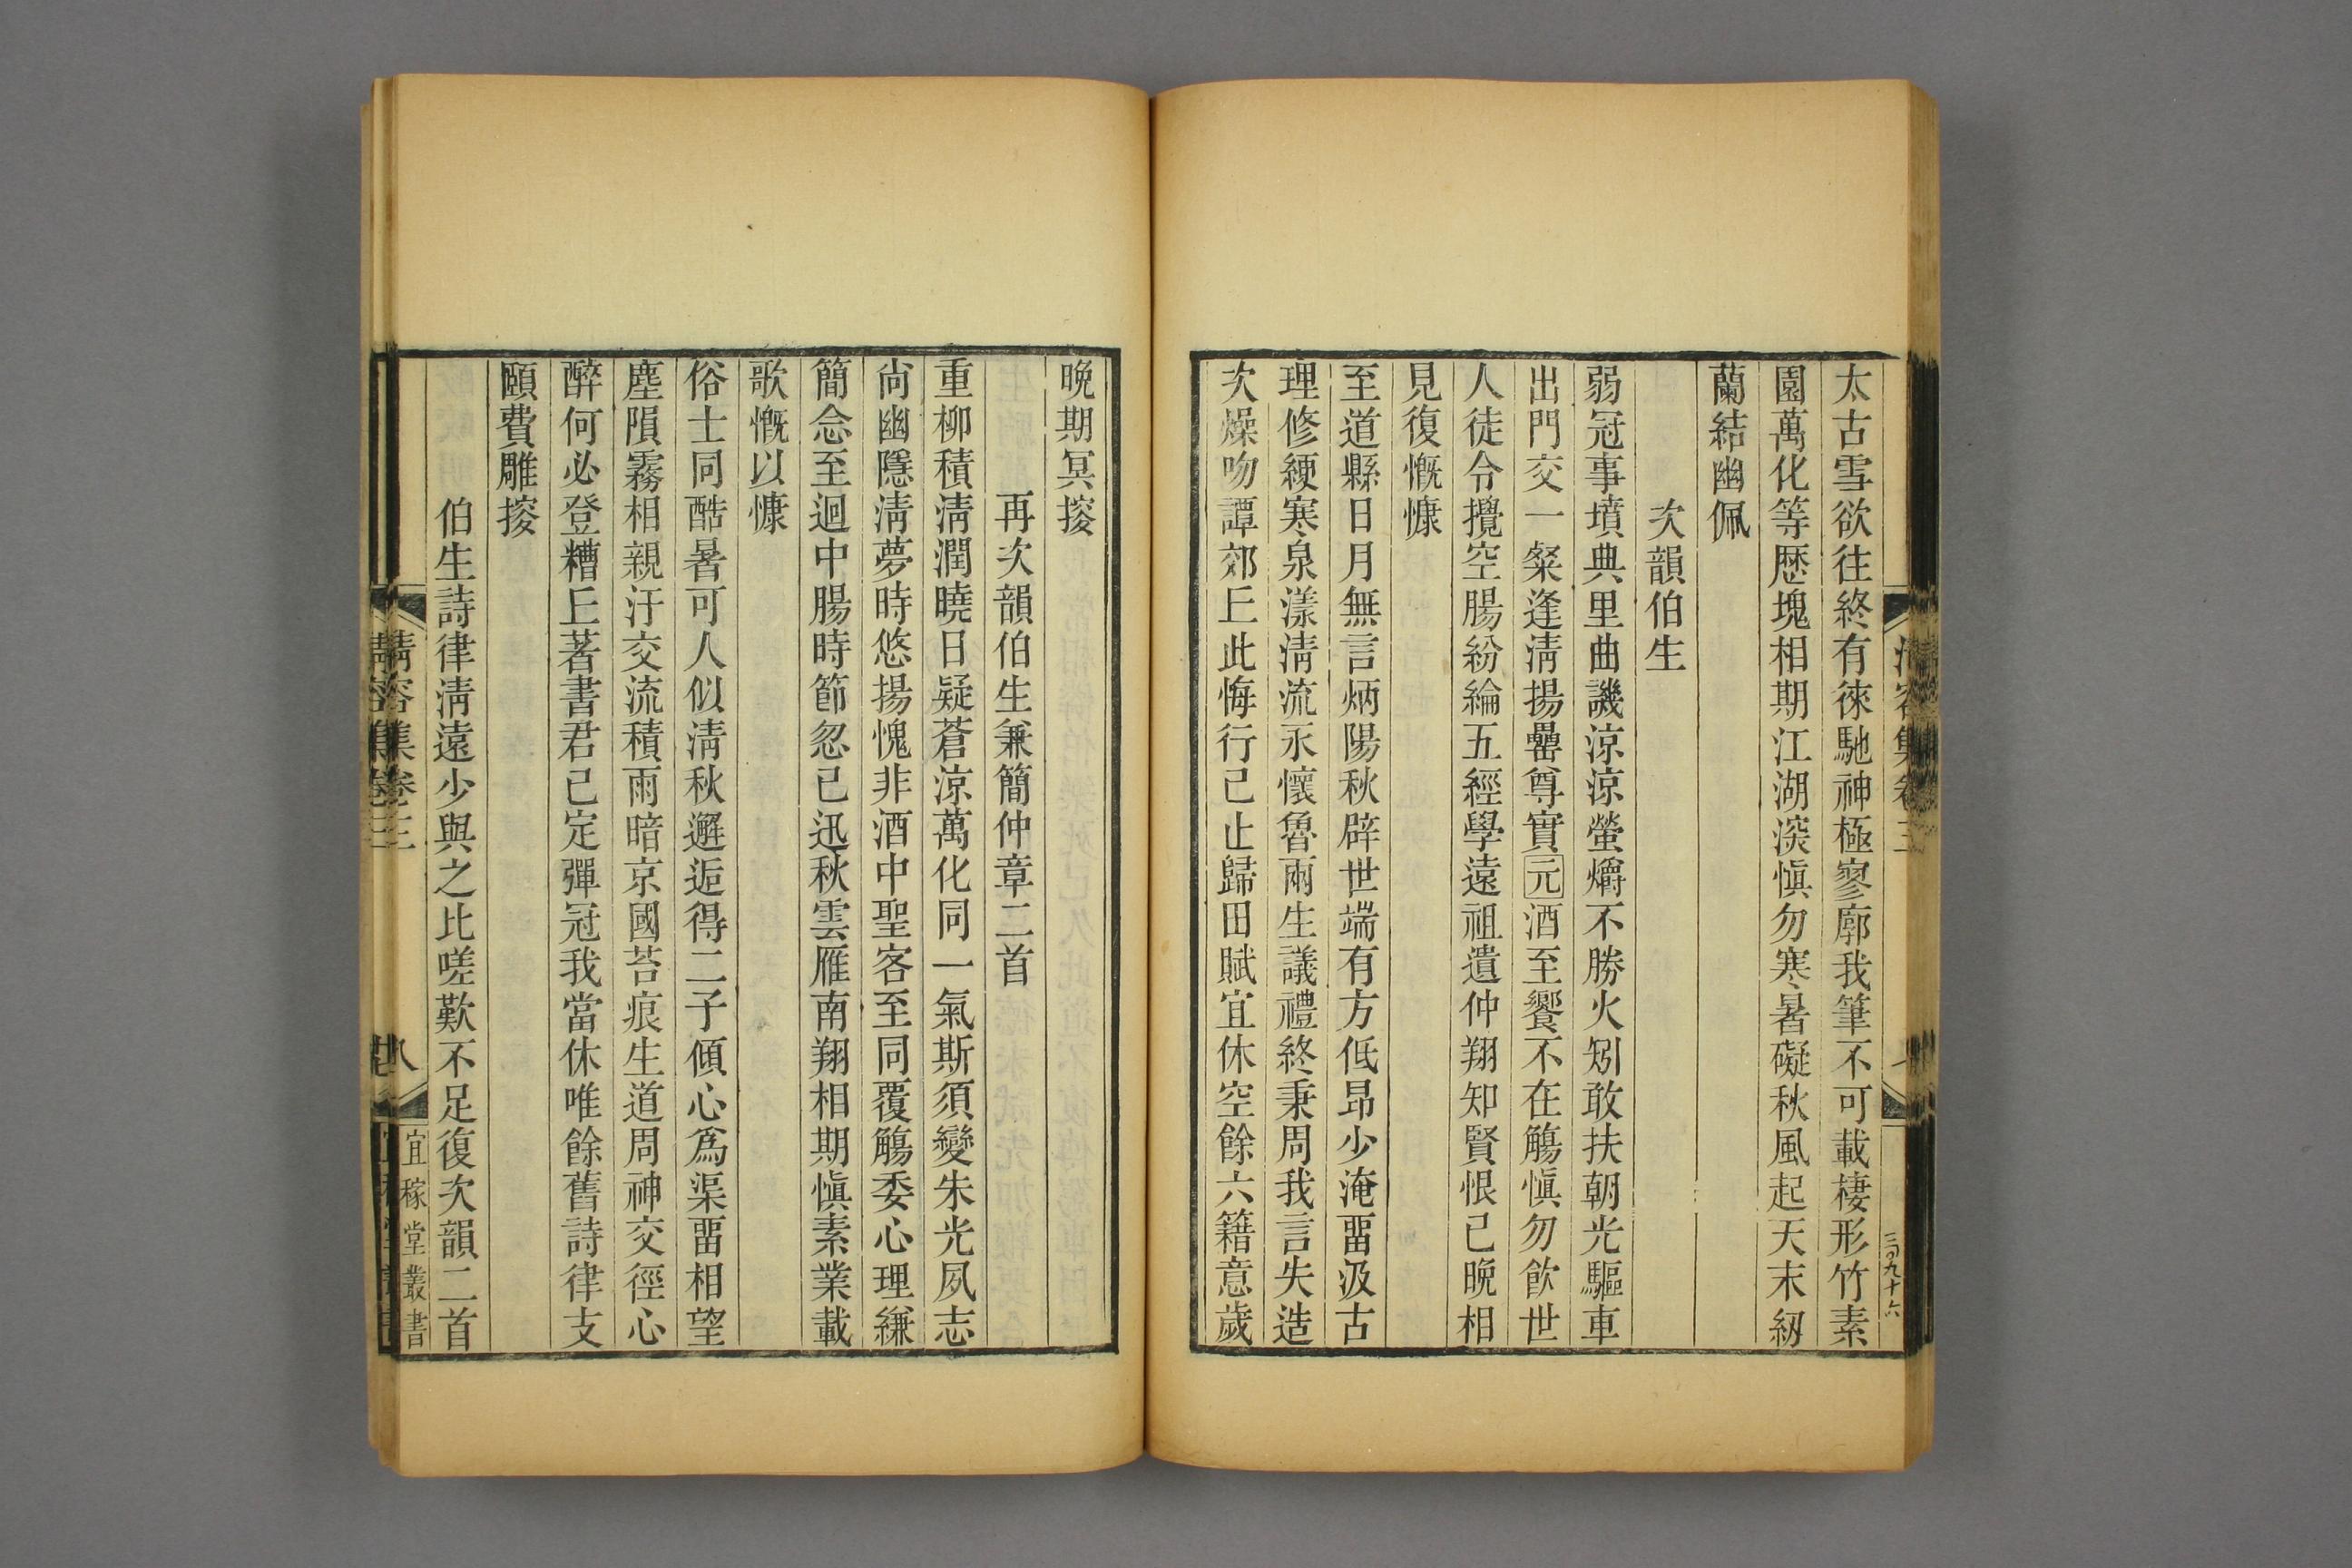 太古雪欲往終有徠馳神極寥廓我筆不可載棲形竹素
園萬化等歷塊相期江湖深愼勿寒暑礙秋風起天末紉
蘭結幽佩
次韻伯生
弱冠事墳典里曲譏涼涼螢爝不勝火矧敢扶朝光驅車
出門交一粲逢淸揚罍尊實元酒至饗不在觴愼勿飮世
人徒令攪空腸紛綸五經學遠祖遺仲翔知賢恨已晚相
見復慨慷
至道縣日月無言炳陽秋辟世端有方低昂少淹畱汲古
理修綆寒泉漾淸流永懷魯兩生議禮終秉周我言失造
次燥吻譚郊丘此悔行已止歸田賦宜休空餘六籍意歲
晚期冥搜
再次韻伯生兼簡仲章二首
重柳積淸潤曉日疑蒼涼萬化同一氣斯須變朱光夙志
尙幽隱淸夢時悠揚愧非酒中聖客至同覆觴委心理縑
簡念至迴中腸時節忽已迅秋雲雁南翔相期愼素業載
歌慨以慷
俗士同酷暑可人似淸秋邂逅得二子傾心爲渠畱相望
塵隕霧相親汗交流積雨暗京國苔痕生道周神交徑心
醉何必登糟丘著書君已定彈冠我當休唯餘舊詩律支
頤費雕搜
伯生詩律淸遠少與之比嗟歎不足復次韻二首
淸容集卷三
八
宜稼堂叢書